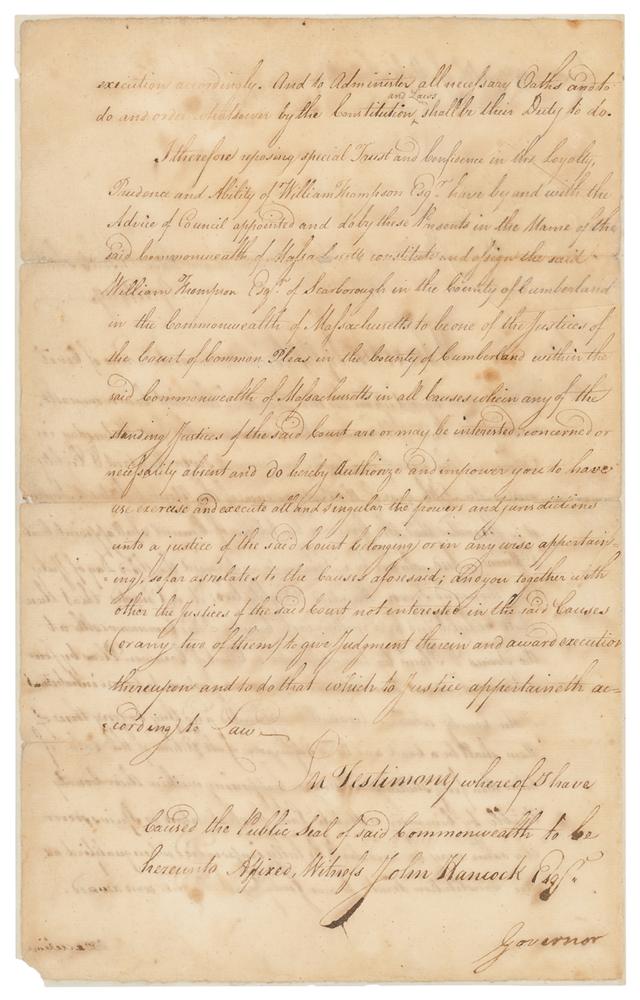 execution accordingly. And to Administer all necessary Oaths and to
and Laws
do and order whatsoever by the Constitution shall be their Duty to do.
I therefore reposing special Trust and Confidence in the Loyalty,
Prudence and Ability of William Thompson Esqr. have by and with the
Advice of Council appointed and do by these Presents in the Name of the
said Commonwealth of Massachusetts constitute and assign the said
William Thompson Esqr. of Scarborough in the County of Cumberland
in the Commonwealth of Massachusetts to be one of the Justices of
the Court of Common Pleas in the County of Cumberland within the
said Commonwealth of Massachusetts in all Causes wherein any of the
standing Justices of the said Court are or may be interested, concerned or
necessarily absent and do hereby Authorize and impower you to have
use exercise and execute all and singular the powers and jurisdictions
unto a justice of the said Court belonging or in any wise appertain-
ing, so far as relates to the Causes aforesaid; and you together with
other the Justices of the said Court not interested in the said Causes
(or any two of them) to give Judgment therein and award execution
thereupon and to do that which to Justice appertaineth ac=
:cording to Law.
In Testimony whereof I have
Caused the Public Seal of said Commonwealth to be
hereunto Affixed, Witness John Hancock Esqr.
Governor